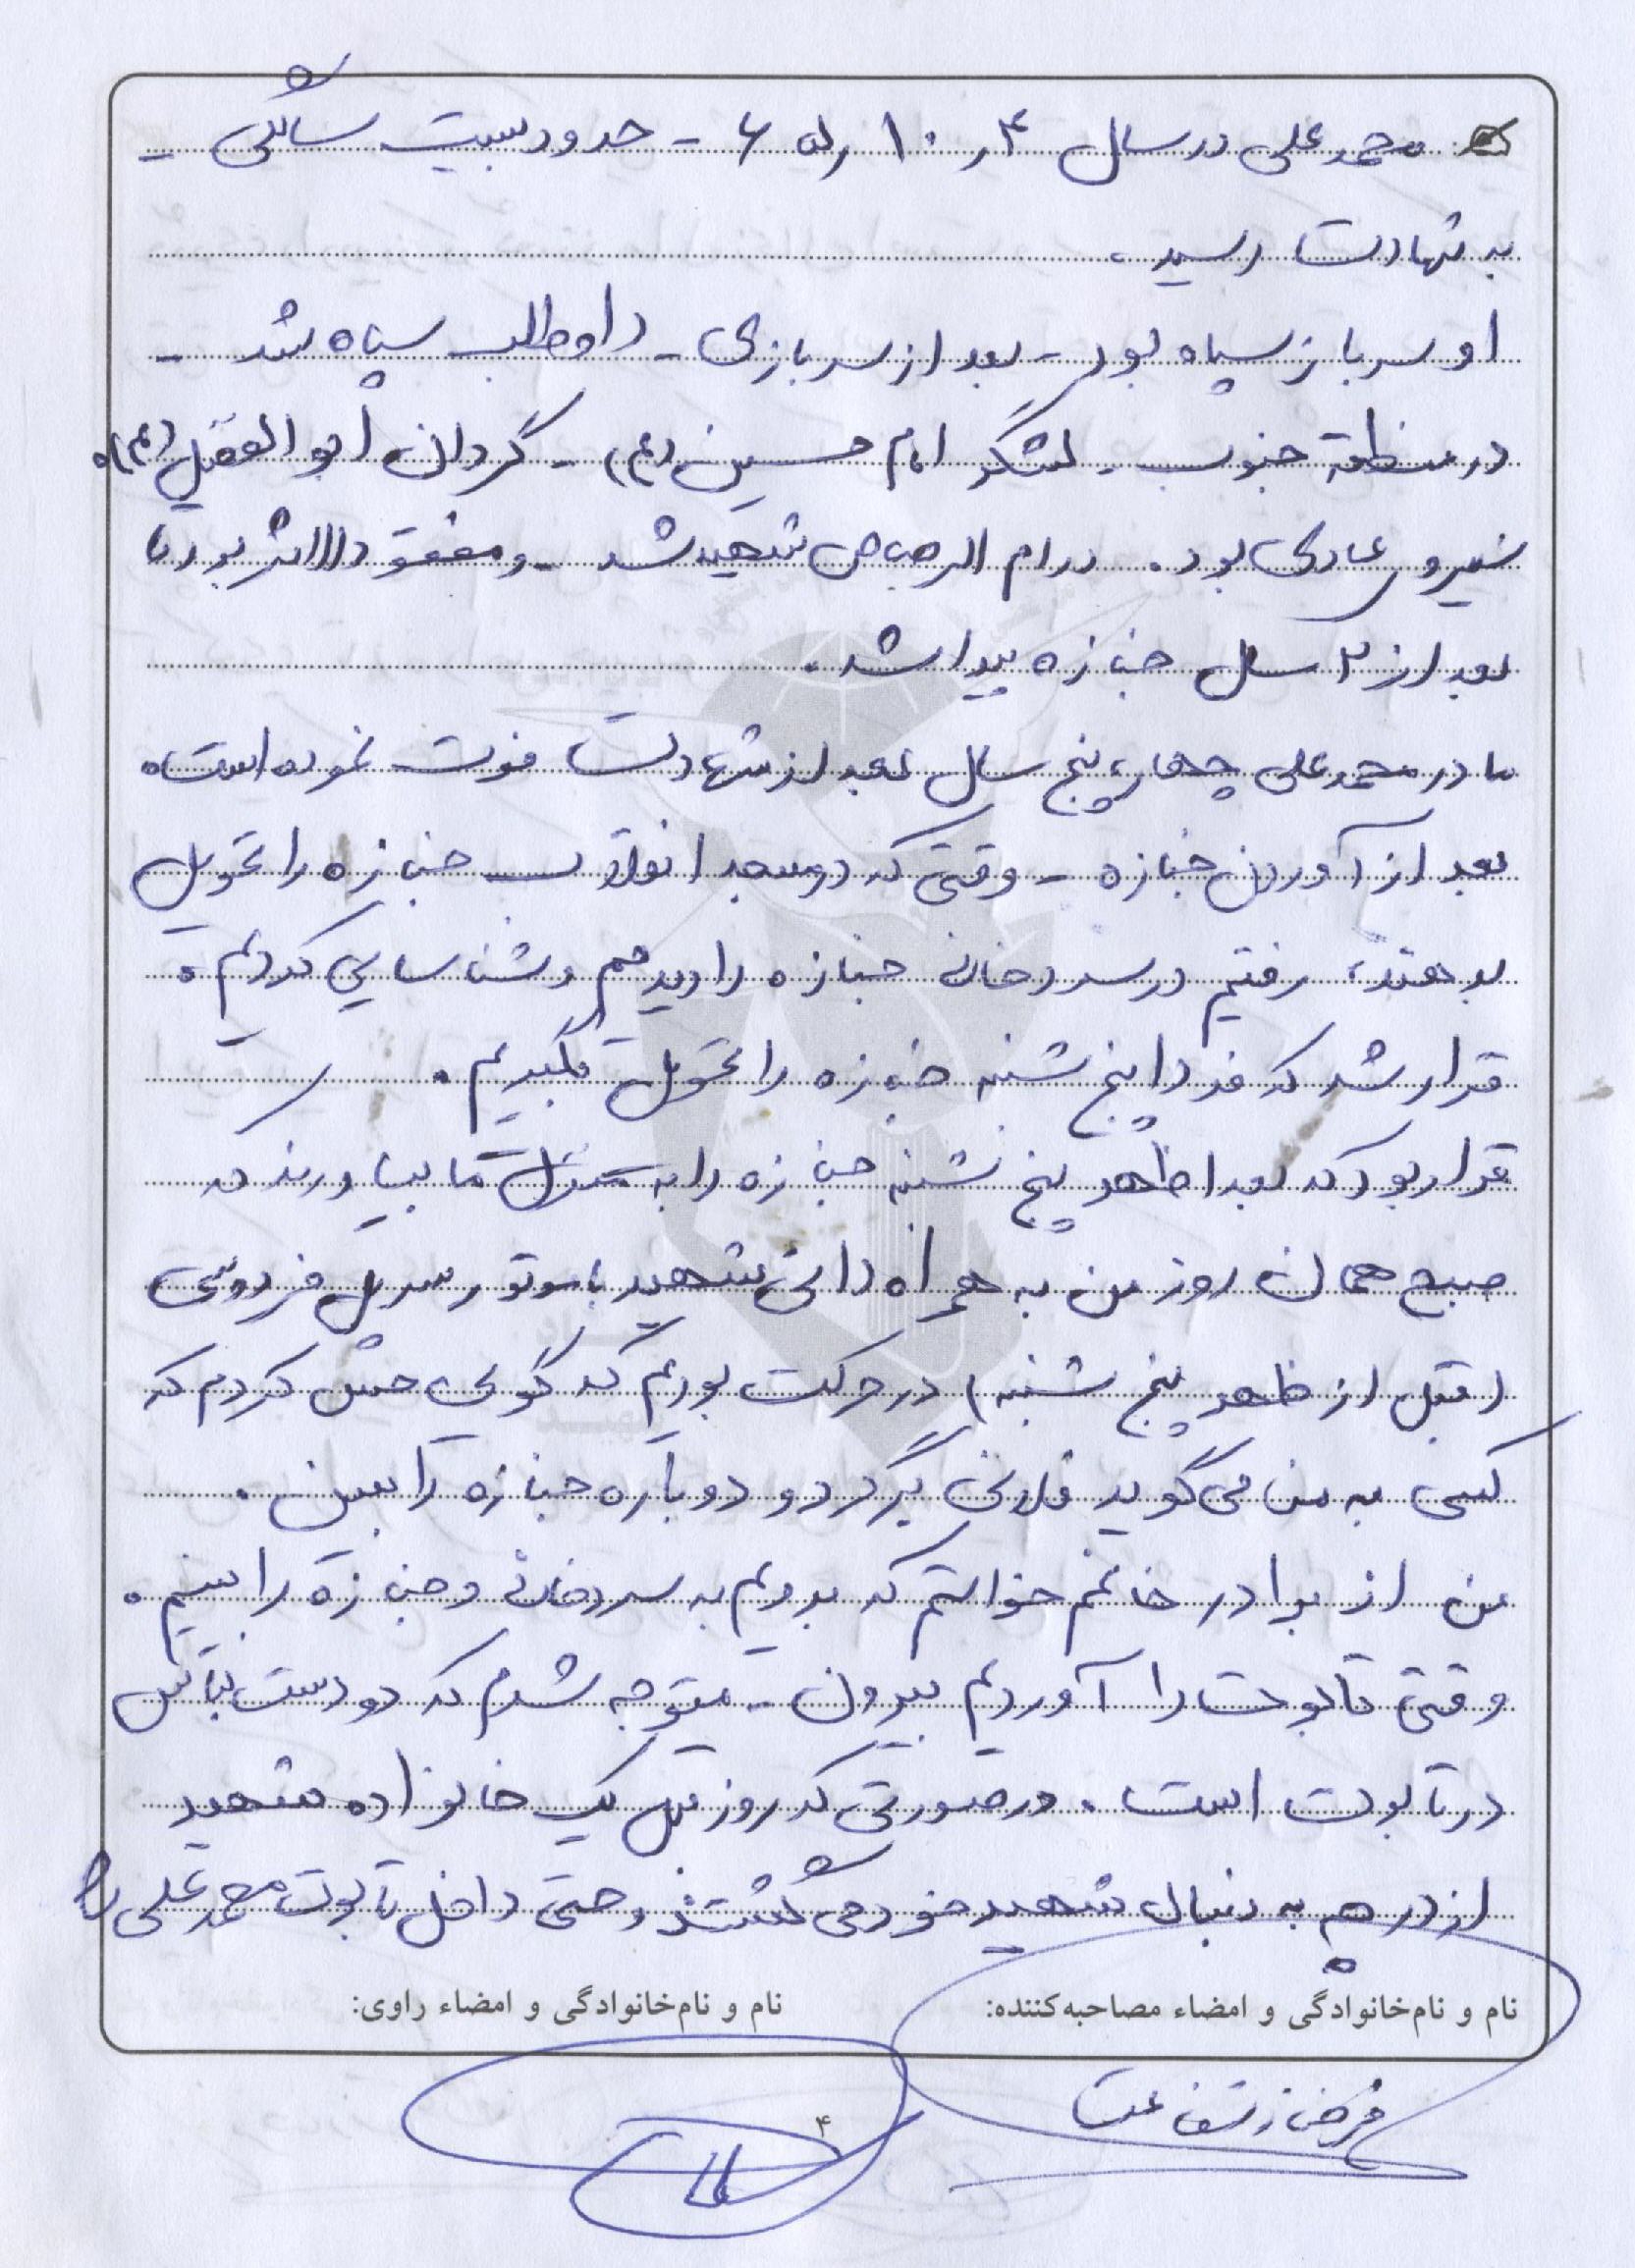 محمدعلی در سال ۴ ر ۱۰ ر ۶۵ - حدود بیست سالگی -
به شهادت رسید.
او سرباز سپاه بود - بعد از سربازی - داوطلب سپاه شد -
در منطقه جنوب - لشگر امام حسین (ع) - گردان ابوالفضل (ع).
نیرو عادی بود. در ام الرصاص شهید شد - و مفقودالاثر بود تا
بعد از ۲ سال جنازه پیدا شد.
مادر محمدعلی چهار، پنج سال بعد از شهادت فوت نموده است.
بعد از آوردن جنازه - وقتی که در مسجد انقلاب جنازه را تحویل
بدهند، رفتیم در سردخانه جنازه را دیدیم و شناسایی کردیم.
قرار شد که فردا پنج شنبه جنازه را تحویل بگیریم.
قرار بود که بعدا ظهر پنج شنبه جنازه را به منزل ما بیاورند که
صبح همان روز من به همراه دائی شهید با موتور سر پل فردوسی
(قبل از ظهر پنج شنبه) در حرکت بودیم که گویی حس کردم که
کسی به من می گوید فلانی برگرد و دوباره جنازه را ببین.
من از برادر خانمم خواستم که برویم به سردخانه و جنازه را ببینیم.
وقتی تابوت را آوردیم بیرون - متوجه شدم که دو دست لباس
در تابوت است. در صورتی که روز قبل یک خانواده شهید
از در هم به دنبال شهید خود می گشتند و حتی داخل تابوت محمدعلی را
نام و نام‌خانوادگی و امضاء مصاحبه‌کننده:
نام و نام‌خانوادگی و امضاء راوی:
فرحناز شفاعت
۴